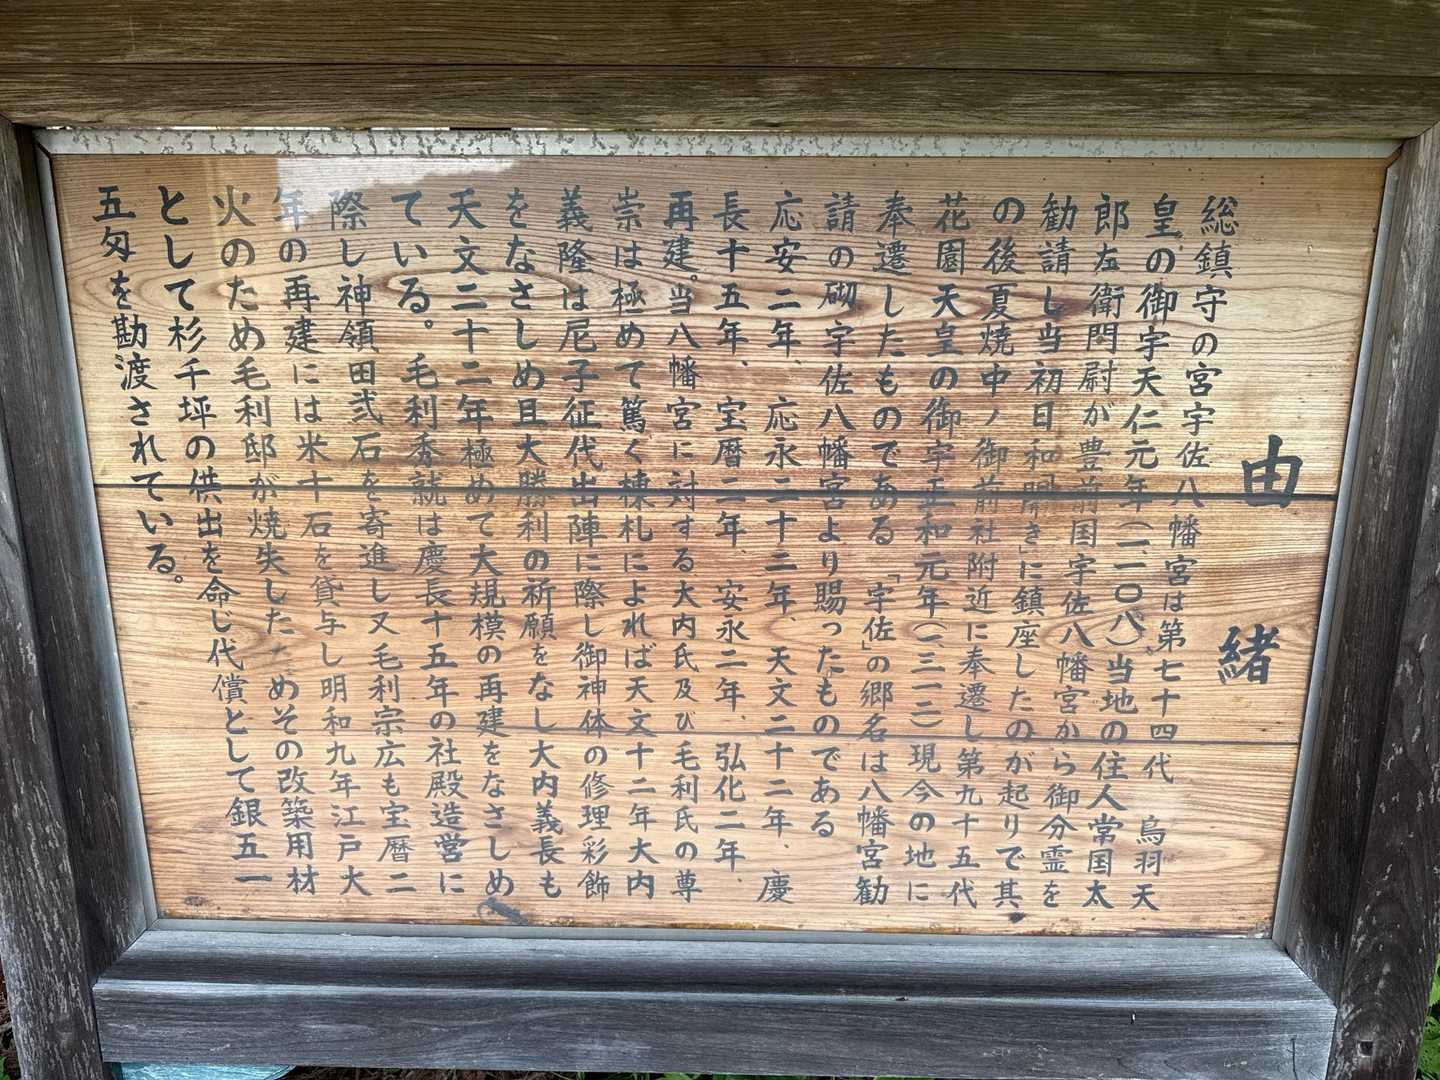 由緒
総鎮守の宮宇佐八幡宮は第七十四代 鳥羽天
皇の御宇天仁元年(一、一〇八)当地の住人常国太
郎左衛門尉が豊前国宇佐八幡宮から御分霊を
勧請し当初日和「開き」に鎮座したのが起りで其
の後夏焼中ノ御前社附近に奉遷し第九十五代
花園天皇の御宇正和元年(一、三一二)現今の地に
奉遷したものである「宇佐」の郷名は八幡宮勧
請の砌宇佐八幡宮より賜ったものである
応安二年、応永二十二年、天文二十二年、慶
長十五年、宝暦二年、安永二年、弘化二年、
再建。当八幡宮に対する大内氏及び毛利氏の尊
崇は極めて篤く棟札によれば天文十二年大内
義隆は尼子征代出陣に際し御神体の修理彩飾
をなさしめ且大勝利の祈願をなし大内義長も
天文二十二年極めて大規模の再建をなさしめ
ている。毛利秀就は慶長十五年の社殿造営に
際し神領田弐石を寄進し又毛利宗広も宝暦二
年の再建には米十石を貸与し明和九年江戸大
火のため毛利邸が焼失したためその改築用材
として杉千坪の供出を命じ代償として銀五一
五匁を勘渡されている。